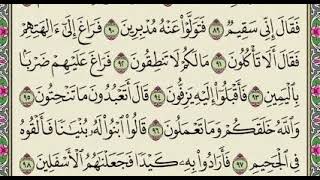 فَقَالَ إِنِّى سَقِيمٌ ٨٩ فَتَوَلَّوْا۟ عَنْهُ مُدْبِرِينَ ٩٠ فَرَاغَ إِلَىٰٓ ءَالِهَتِهِمْ
فَقَالَ أَلَا تَأْكُلُونَ ٩١ مَا لَكُمْ لَا تَنطِقُونَ ٩٢ فَرَاغَ عَلَيْهِمْ ضَرْبًۢا
بِٱلْيَمِينِ ٩٣ فَأَقْبَلُوٓا۟ إِلَيْهِ يَزِفُّونَ ٩٤ قَالَ أَتَعْبُدُونَ مَا تَنْحِتُونَ ٩٥
وَٱللَّهُ خَلَقَكُمْ وَمَا تَعْمَلُونَ ٩٦ قَالُوا۟ ٱبْنُوا۟ لَهُۥ بُنْيَٰنًا فَأَلْقُوهُ
فِى ٱلْجَحِيمِ ٩٧ فَأَرَادُوا۟ بِهِۦ كَيْدًا فَجَعَلْنَٰهُمُ ٱلْأَسْفَلِينَ ٩٨